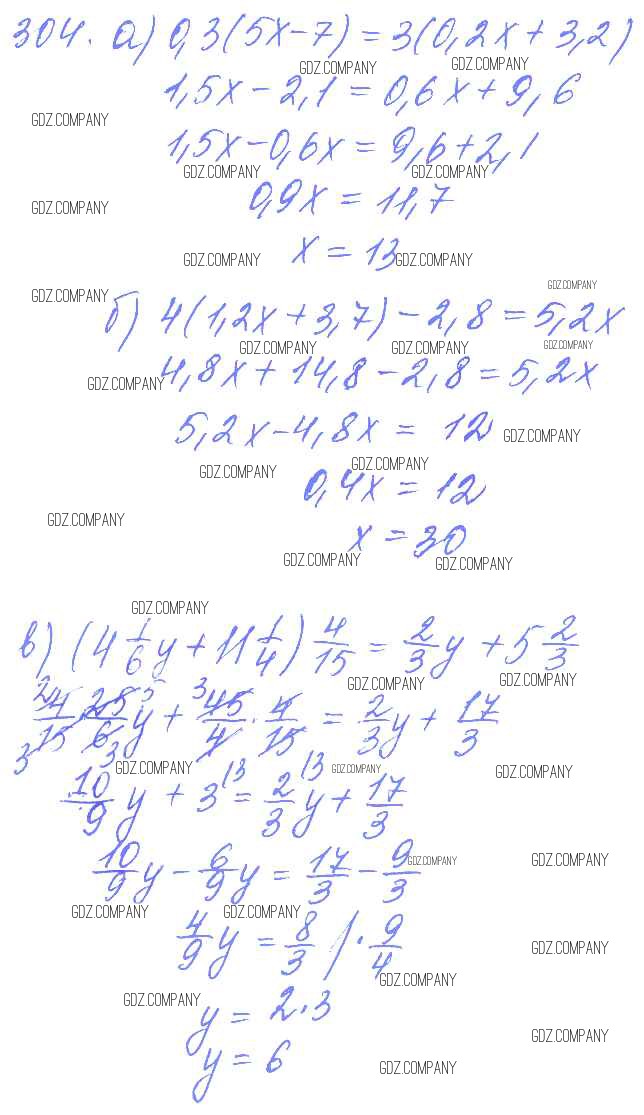 304. а) 0,3(5x-7)=3(0,2x+3,2)
GDZ.COMPANY GDZ.COMPANY
1,5x-2,1=0,6x+9,6
GDZ.COMPANY
1,5x-0,6x=9,6+2,1
GDZ.COMPANY GDZ.COMPANY
GDZ.COMPANY 0,9x=11,7
GDZ.COMPANY x=13 GDZ.COMPANY
GDZ.COMPANY GDZ.COMPANY
б) 4(1,2x+3,7)-2,8=5,2x
GDZ.COMPANY GDZ.COMPANY GDZ.COMPANY
GDZ.COMPANY 4,8x+14,8-2,8=5,2x
5,2x-4,8x= 12 GDZ.COMPANY
GDZ.COMPANY GDZ.COMPANY
0,4x=12
GDZ.COMPANY
x=30
GDZ.COMPANY GDZ.COMPANY
GDZ.COMPANY
в) (4 1/6 y + 11 1/4) 4/15 = 2/3 y + 5 2/3
GDZ.COMPANY GDZ.COMPANY
4/15 · 25/6 y + 45/4 · 4/15 = 2/3 y + 17/3
GDZ.COMPANY GDZ.COMPANY GDZ.COMPANY
10/9 y + 3 = 2/3 y + 17/3
10/9 y - 6/9 y = 17/3 - 9/3 GDZ.COMPANY GDZ.COMPANY
GDZ.COMPANY GDZ.COMPANY
4/9 y = 8/3 | · 9/4 GDZ.COMPANY
GDZ.COMPANY
GDZ.COMPANY y = 2·3
GDZ.COMPANY
y = 6 GDZ.COMPANY